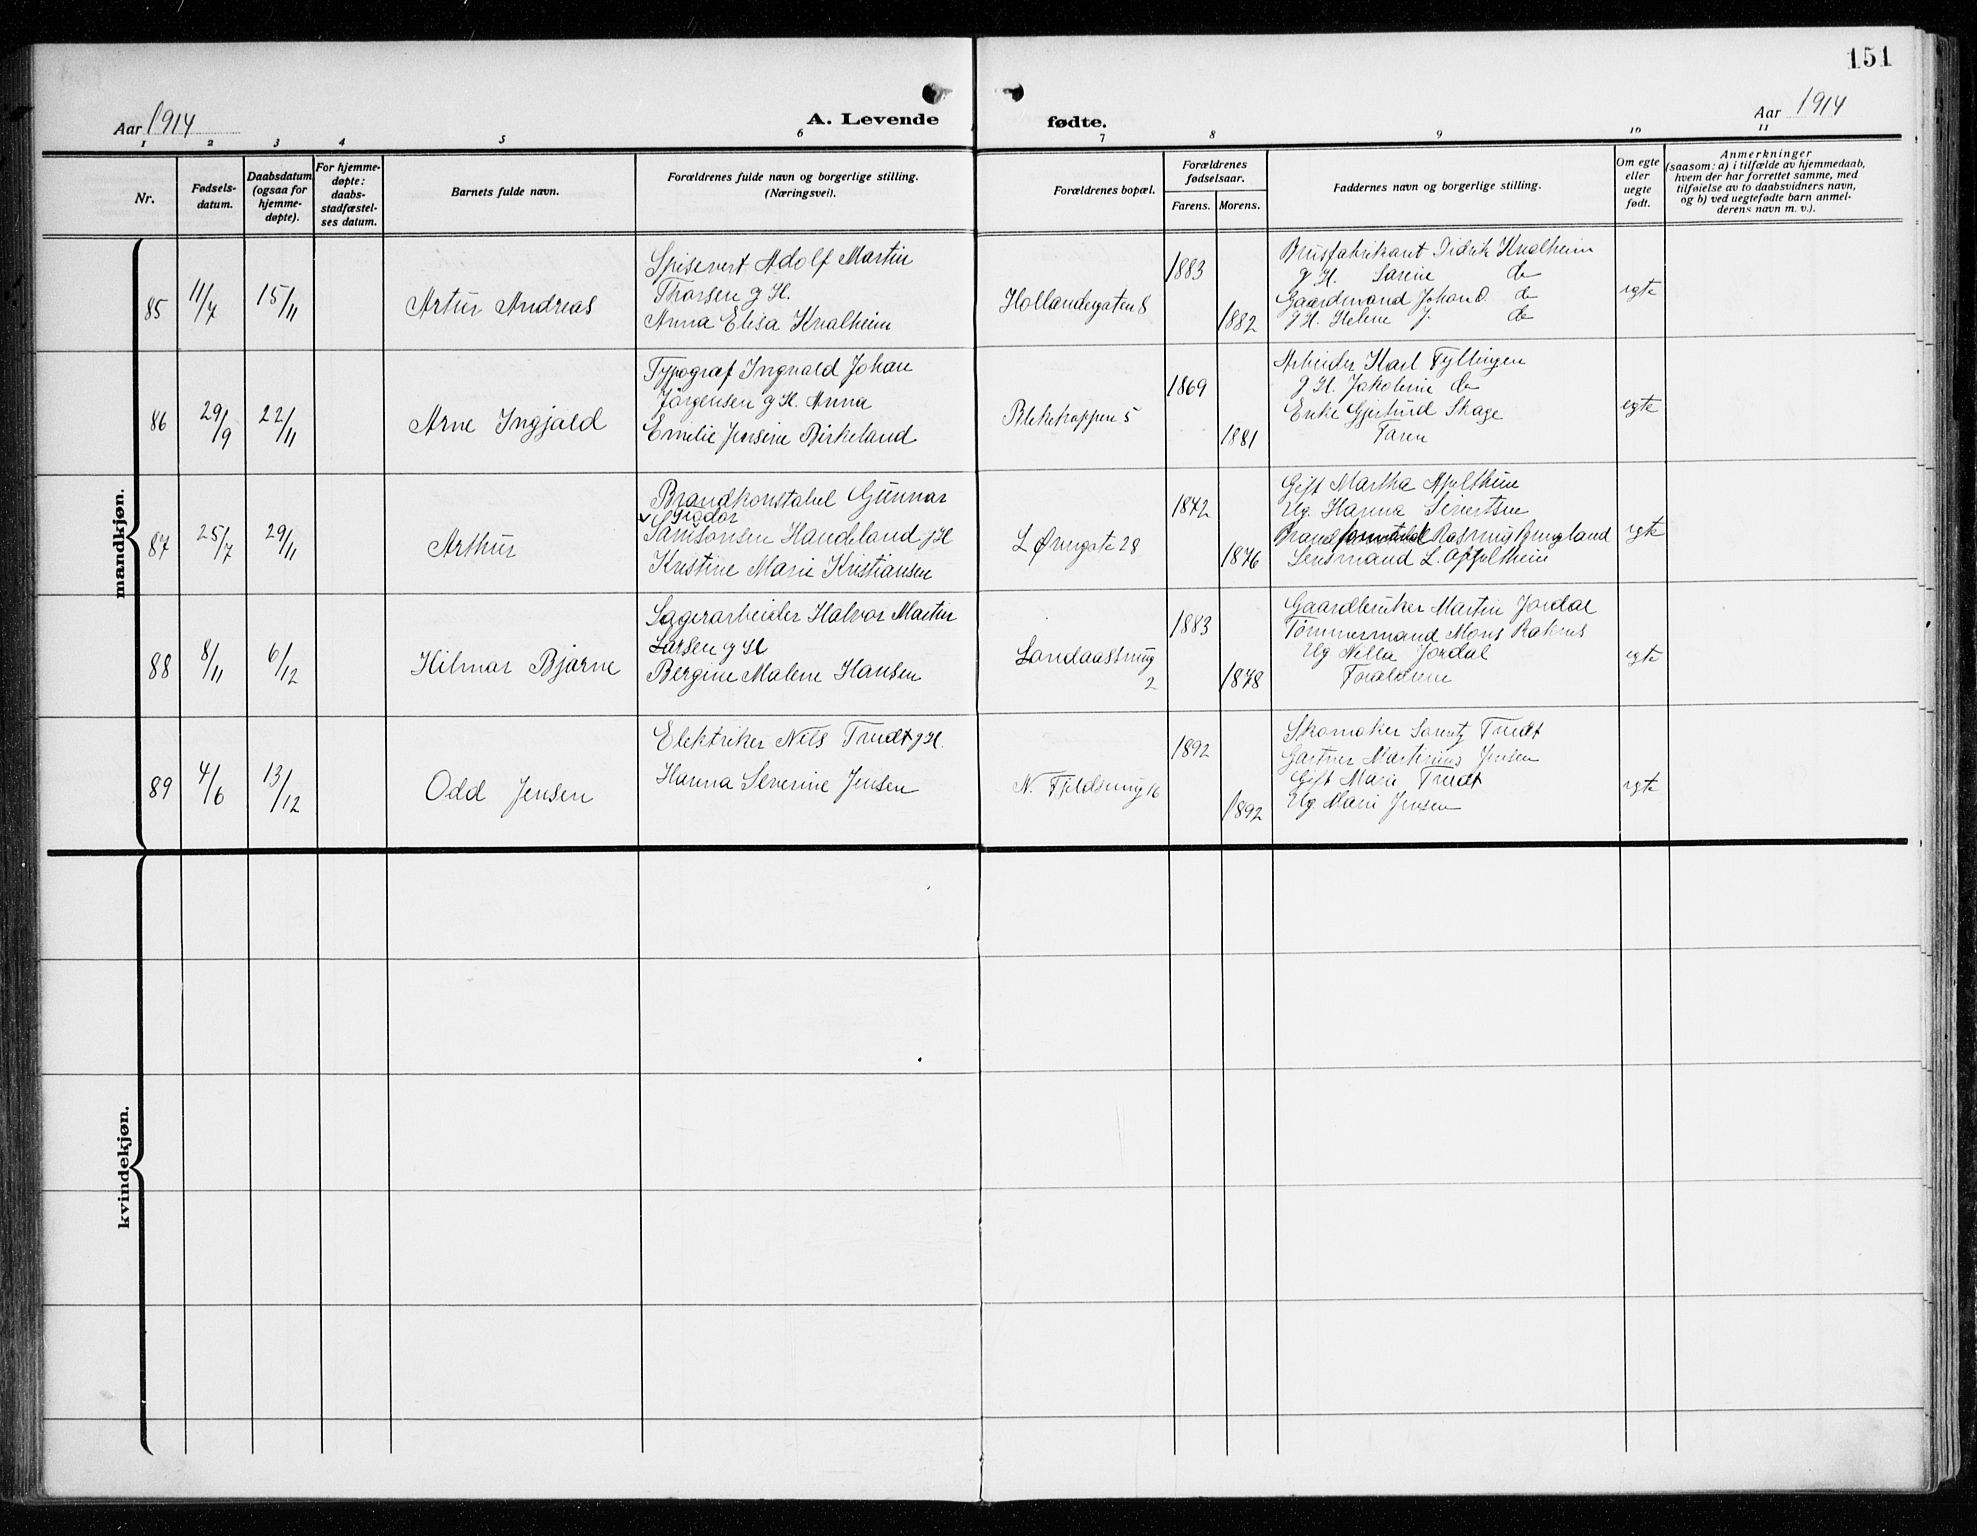 151
Aar 1914
A. Levende fødte.
Aar 1914
1 2 3 4 5 6 7 8 9 10 11
Nr.
Fødsels-
datum.
Daabsdatum
(ogsaa for
hjemme-
døpte).
For hjemme-
døpte:
daabs-
stadfæstel-
ses datum.
Barnets fulde navn.
Forældrenes fulde navn og borgerlige stilling.
(Næringsvei).
Forældrenes bopæl.
Forældrenes
fødselsaar.
Farens. Morens.
Faddernes navn og borgerlige stilling.
Om egte
eller
uegte
født.
Anmerkninger
(saasom: a) i tilfælde av hjemmedaab,
hvem der har forrettet samme, med
tilføielse av to daabsvidners navn,
og b) ved uegtefødte barn anmel-
derens navn m. v.).
mandkjøn.
85
11/7
15/11
Artur Andreas
Spisevert Adolf Martin
Thorsen g H.
Anna Elisa Kvalheim
Hollendergaten 8
1883
1882
Brusfabrikant Didrik Kvalheim
g H. Sarine do
Gaardmand Johan O. do
g H. Helene J. do
egte
86
29/9
22/11
Arne Ingjald
Typograf Ingvald Johan
Jørgensen g H. Anna
Emelie Jensine Birkeland
Blekekappen 5
1869
1881
Arbeider Karl Fyllingen
g H. Jakobine do
Enke Gjertrud Skage
Faren
egte
87
25/7
29/11
Arthur
Brandkonstabel Gunnar
Samsonsen Handeland g H
Kristine Marie Kristiansen
L Øvregate 28
1872
1876
Gift Martha Apelthun
Ug. Hanna Sivertsen
Rasmus Bergland
Lensmand L. Apeltheim
egte
88
8/11
6/12
Hilmar Bjarne
Lagerarbeider Halvor Martin
Larsen g H
Bergine Malene Hansen
Landaassving
2
1883
1878
Gaardbruker Martin Jordal
Tømmermand Mons Raknes
Ug Nilla Jordal
Forældrene
egte
89
4/6
13/12
Odd Jensen
Elektriker Nils Tradt g H.
Hanna Severine Jensen
N. Fjeldsmug 16
1892
1892
Skomaker Lorentz Tradt
Gartner Martinius Jensen
Gift Marie Tradt
Ug. Marie Jensen
egte
kvindekjøn.